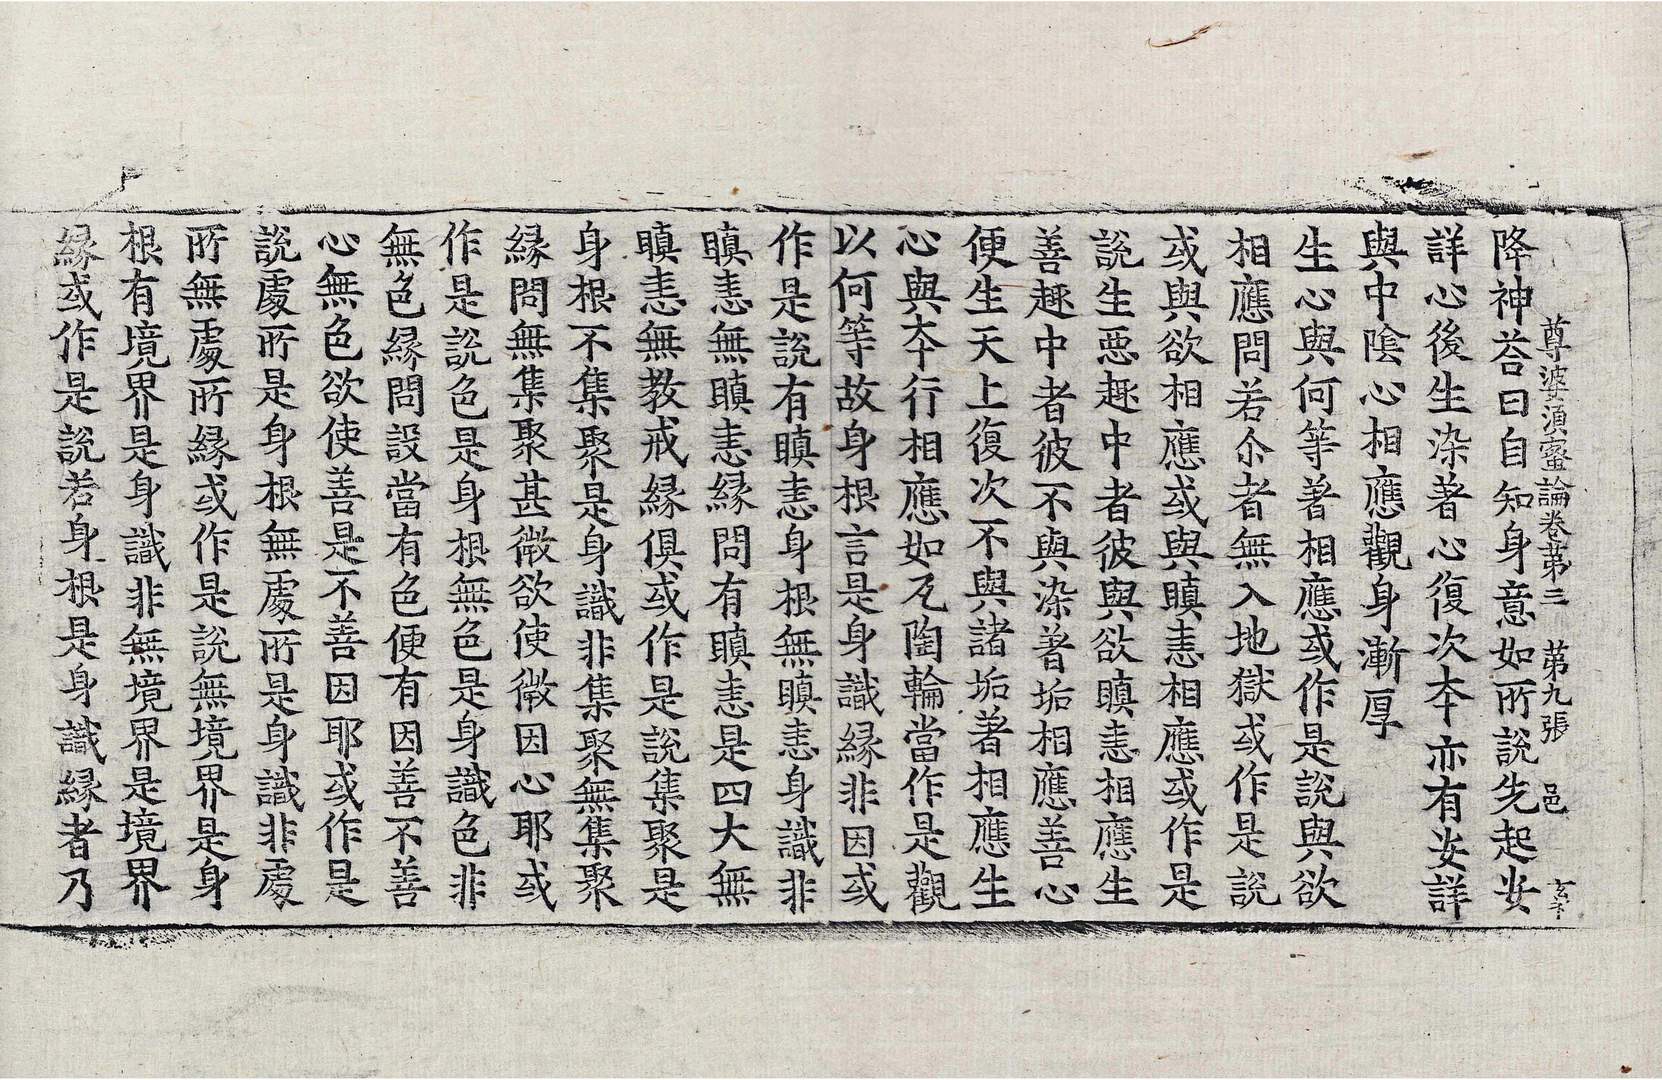 尊婆須蜜論卷第三　第九張　邑　玄十
降神荅曰自知身意如所說先起安
詳心後生染著心復次本亦有安詳
與中陰心相應觀身漸厚
生心與何等著相應或作是說與欲
相應問若尒者無入地獄或作是說
或與欲相應或與瞋恚相應或作是
說生惡趣中者彼與欲瞋恚相應生
善趣中者彼不與染著垢相應善心
便生天上復次不與諸垢著相應生
心與本行相應如瓦陶輪當作是觀
以何等故身根言是身識緣非因或
作是說有瞋恚身根無瞋恚身識非
瞋恚無瞋恚緣問有瞋恚是四大無
瞋恚無教戒緣俱或作是說集聚是
身根不集聚是身識非集聚無集聚
緣問無集聚甚微欲使微因心耶或
作是說色是身根無色是身識色非
無色緣問設當有色便有因善不善
心無色欲使善是不善因耶或作是
說處所是身根無處所是身識非處
所無處所緣或作是說無境界是身
根有境界是身識非無境界是境界
緣或作是說若身根是身識緣者乃